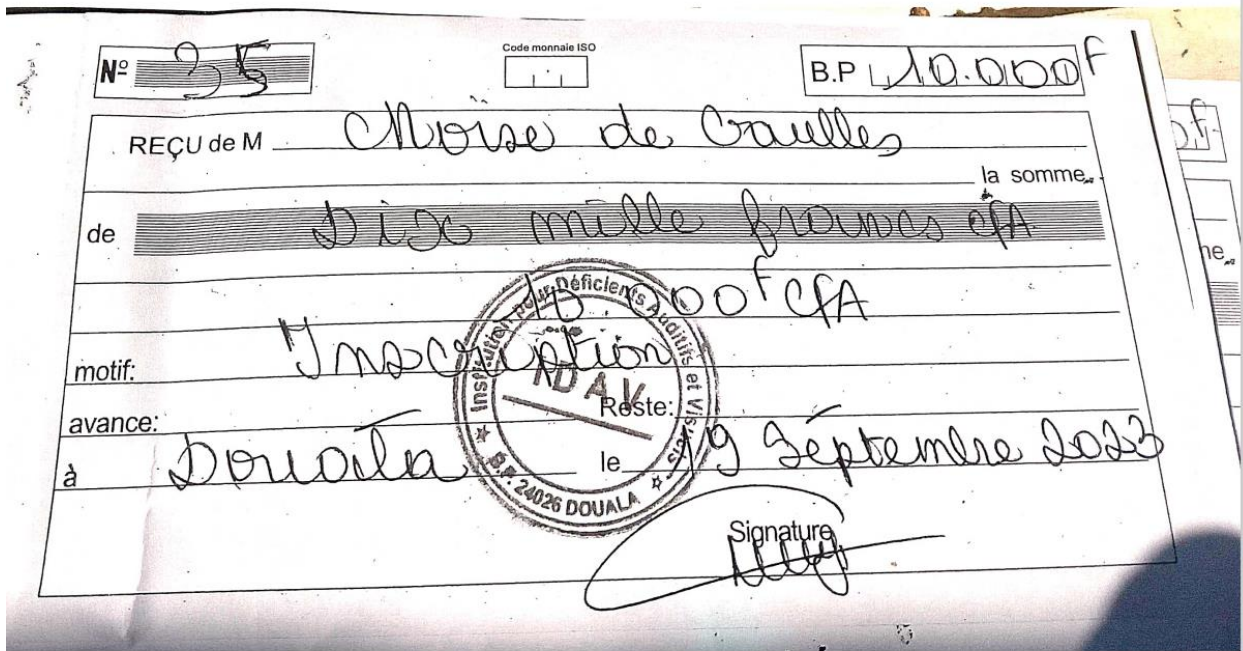 Nº 35
Code monnaie ISO
B.P 10.000 F
REÇU de M Moïse de Gaulles
la somme
de Dix mille francs CFA
10 000 F CFA
motif: Inscription
avance: Reste:
à Douala le 19 Septembre 2023
Signature
Institution pour Déficients Auditifs et Visuels
IDAV
B.P. 24026 DOUALA